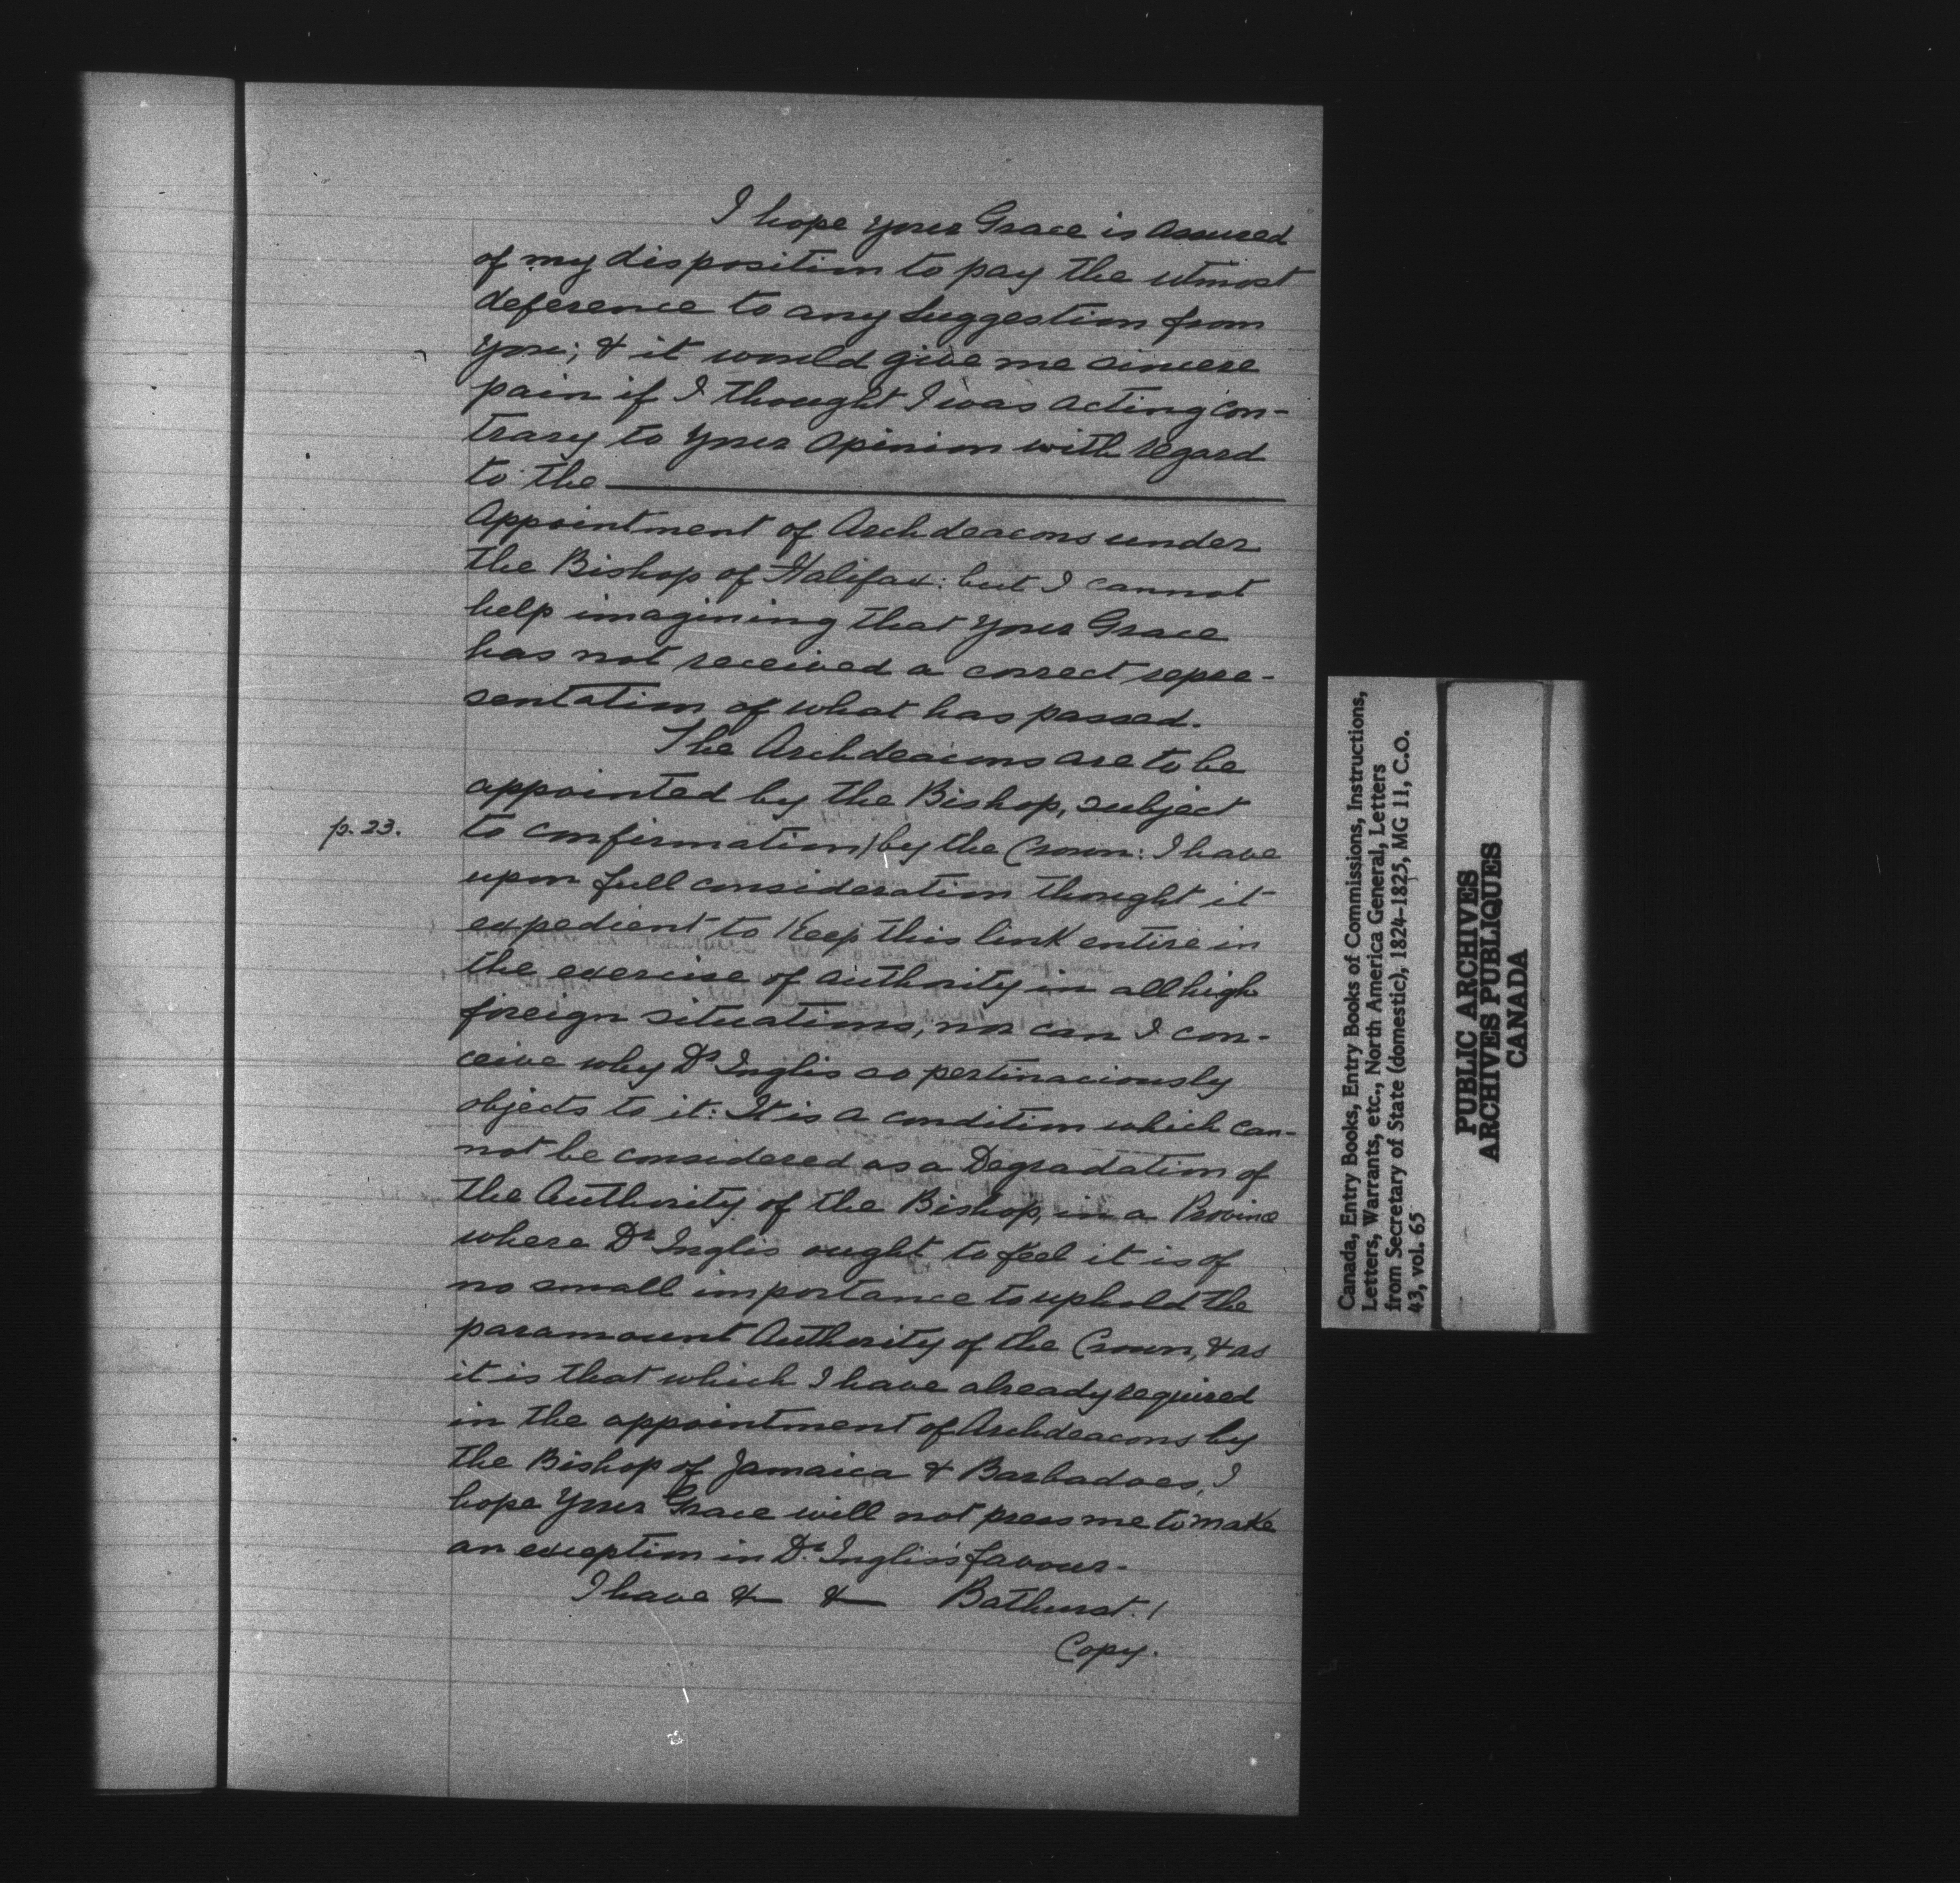 I hope your Grace is assured
of my disposition to pay the utmost
deference to any suggestion from
you; & it would give me sincere
pain if I thought I was acting con-
trary to your opinion with regard
to the
Appointment of Archdeacons under
the Bishop of Halifax: but I cannot
help imagining that your Grace
has not received a correct repre-
sentation of what has passed.
The Archdeacons are to be
appointed by the Bishop, subject
p. 23. to confirmation/by the Crown: I have
upon full consideration thought it
expedient to Keep this link entire in
the exercise of authority in all high
foreign situations, nor can I con-
ceive why Dr Inglis so pertinaciously
objects to it: It is a condition which can-
not be considered as a Degradation of
the Authority of the Bishop, in a Province
where Dr Inglis ought to feel it is of
no small importance to uphold the
paramount Authority of the Crown, & as
it is that which I have already required
in the appointment of Archdeacons by
the Bishop of Jamaica & Barbadoes, I
hope Your Grace will not press me to make
an exception in Dr. Inglis's favour.
I have & & Bathurst. /
Copy.
Canada, Entry Books, Entry Books of Commissions, Instructions,
Letters, Warrants, etc., North America General, Letters
from Secretary of State (domestic), 1824-1825, MG 11, C.O.
43, vol. 65
PUBLIC ARCHIVES
ARCHIVES PUBLIQUES
CANADA